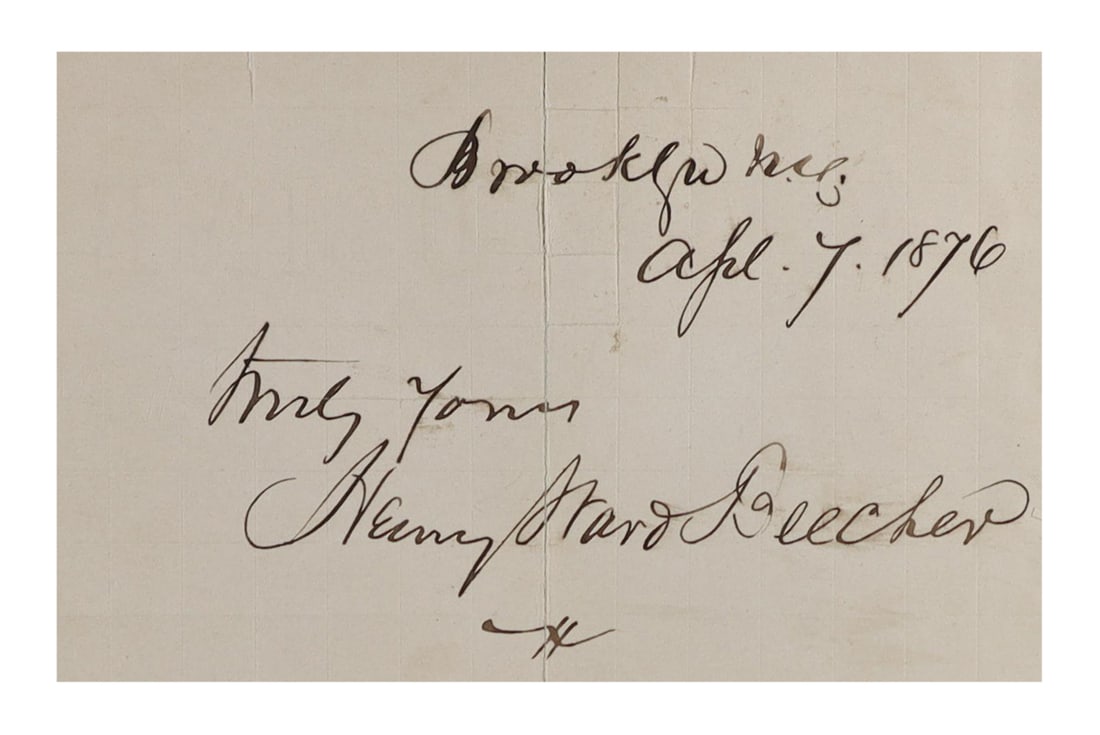 Brooklyn N.Y.
Apl. 7. 1876
Truly Yours
Henry Ward Beecher